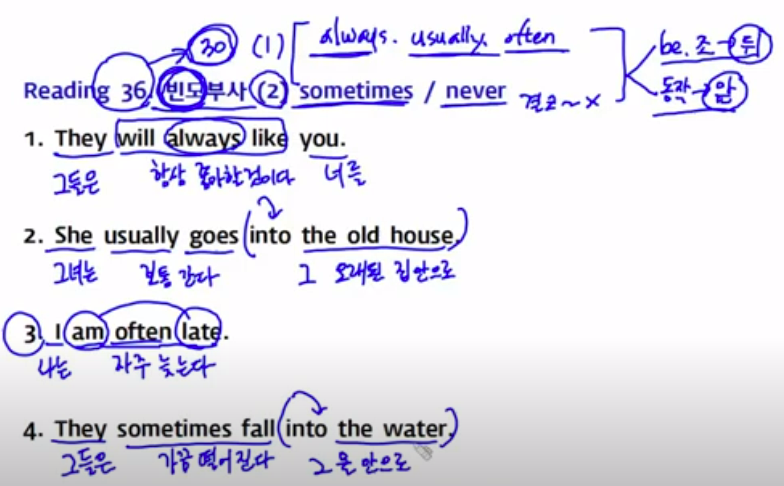 30 (1) always. usually. often
be. 조→뒤
Reading 36. 빈도부사 (2) sometimes / never 결코~×
동작→앞
1. They will always like you.
그들은 항상 좋아할것이다 너를
2. She usually goes (into the old house.)
그녀는 보통 간다 그 오래된 집안으로
3. I am often late.
나는 자주 늦는다
4. They sometimes fall (into the water.)
그들은 가끔 떨어진다 그 물 안으로